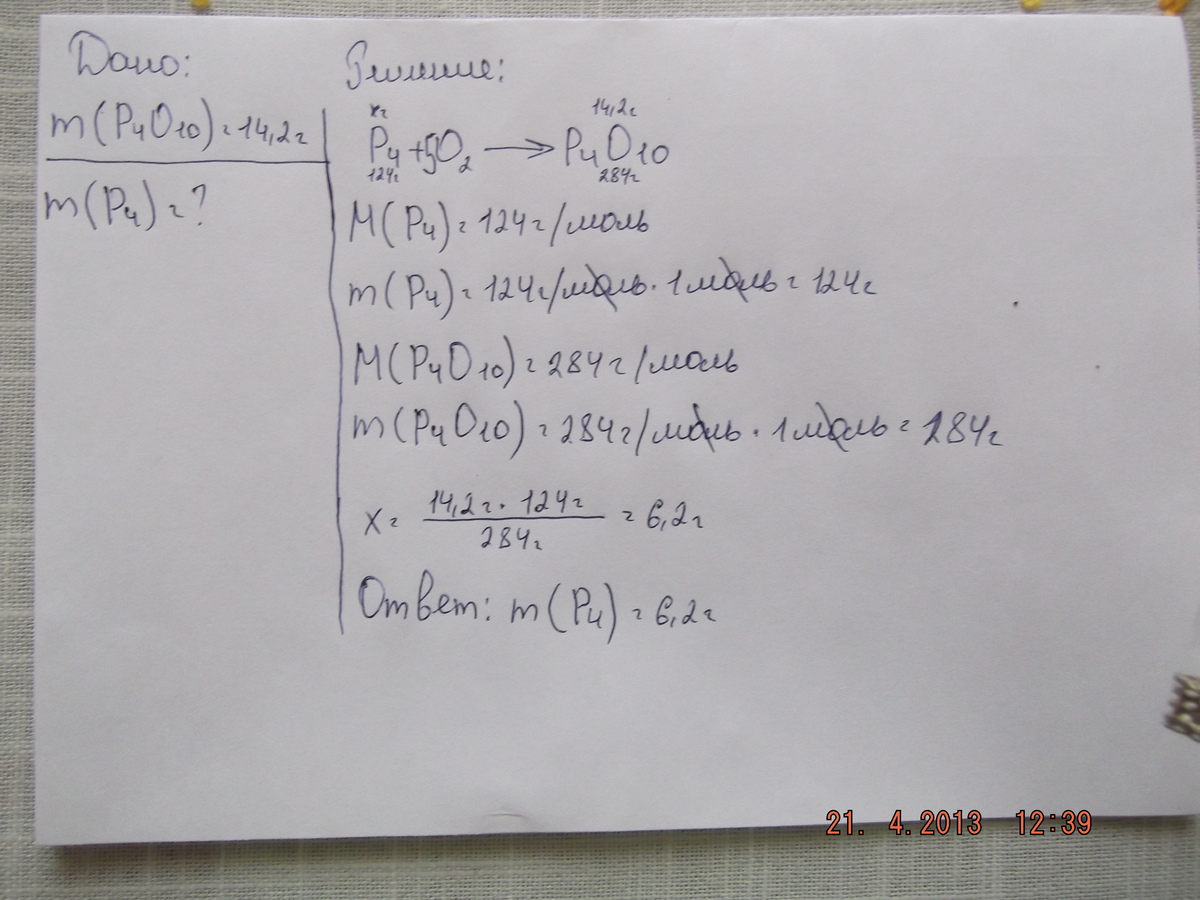 Дано:
m(P4O10) = 14,2г
m(P4) = ?
Решение:
xг 14,2г
P4 + 5O2 → P4O10
124г 284г
M(P4) = 124г/моль
m(P4) = 124г/моль · 1моль = 124г
M(P4O10) = 284г/моль
m(P4O10) = 284г/моль · 1моль = 284г
x = 14,2г · 124г / 284г = 6,2г
Ответ: m(P4) = 6,2г
21. 4.2013 12:39